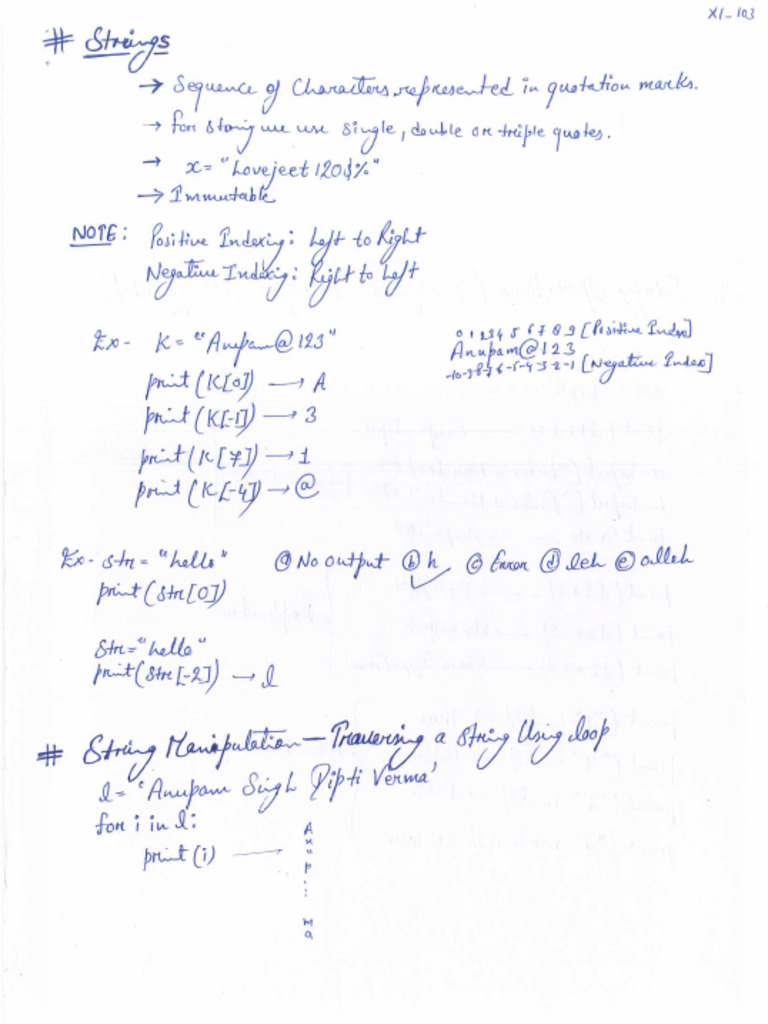 XI-103
# Strings
→ Sequence of Characters, represented in quotation marks.
→ for string we use single, double or triple quotes.
→ x = "Lovejeet120$%"
→ Immutable
NOTE: Positive Indexing: Left to Right
Negative Indexing: Right to Left
Ex- K = "Anupam@123"
print (K[0]) → A
print (K[-1]) → 3
print (K[7]) → 1
print (K[-4]) → @
0 1 2 3 4 5 6 7 8 9 [Positive Index]
Anupam@123
-10-9-8-7-6-5-4-3-2-1 [Negative Index]
Ex- str = "hello" ⓐ No output ⓑ h ✓ ⓒ Error ⓓ leh ⓔ olleh
print (str[0])
str="hello"
print(str[-2]) → l
# String Manipulation — Traversing a string Using loop
l = 'Anupam Singh Dipti Verma
for i in l:
print (i) →
A
n
u
p
⋮
m
a